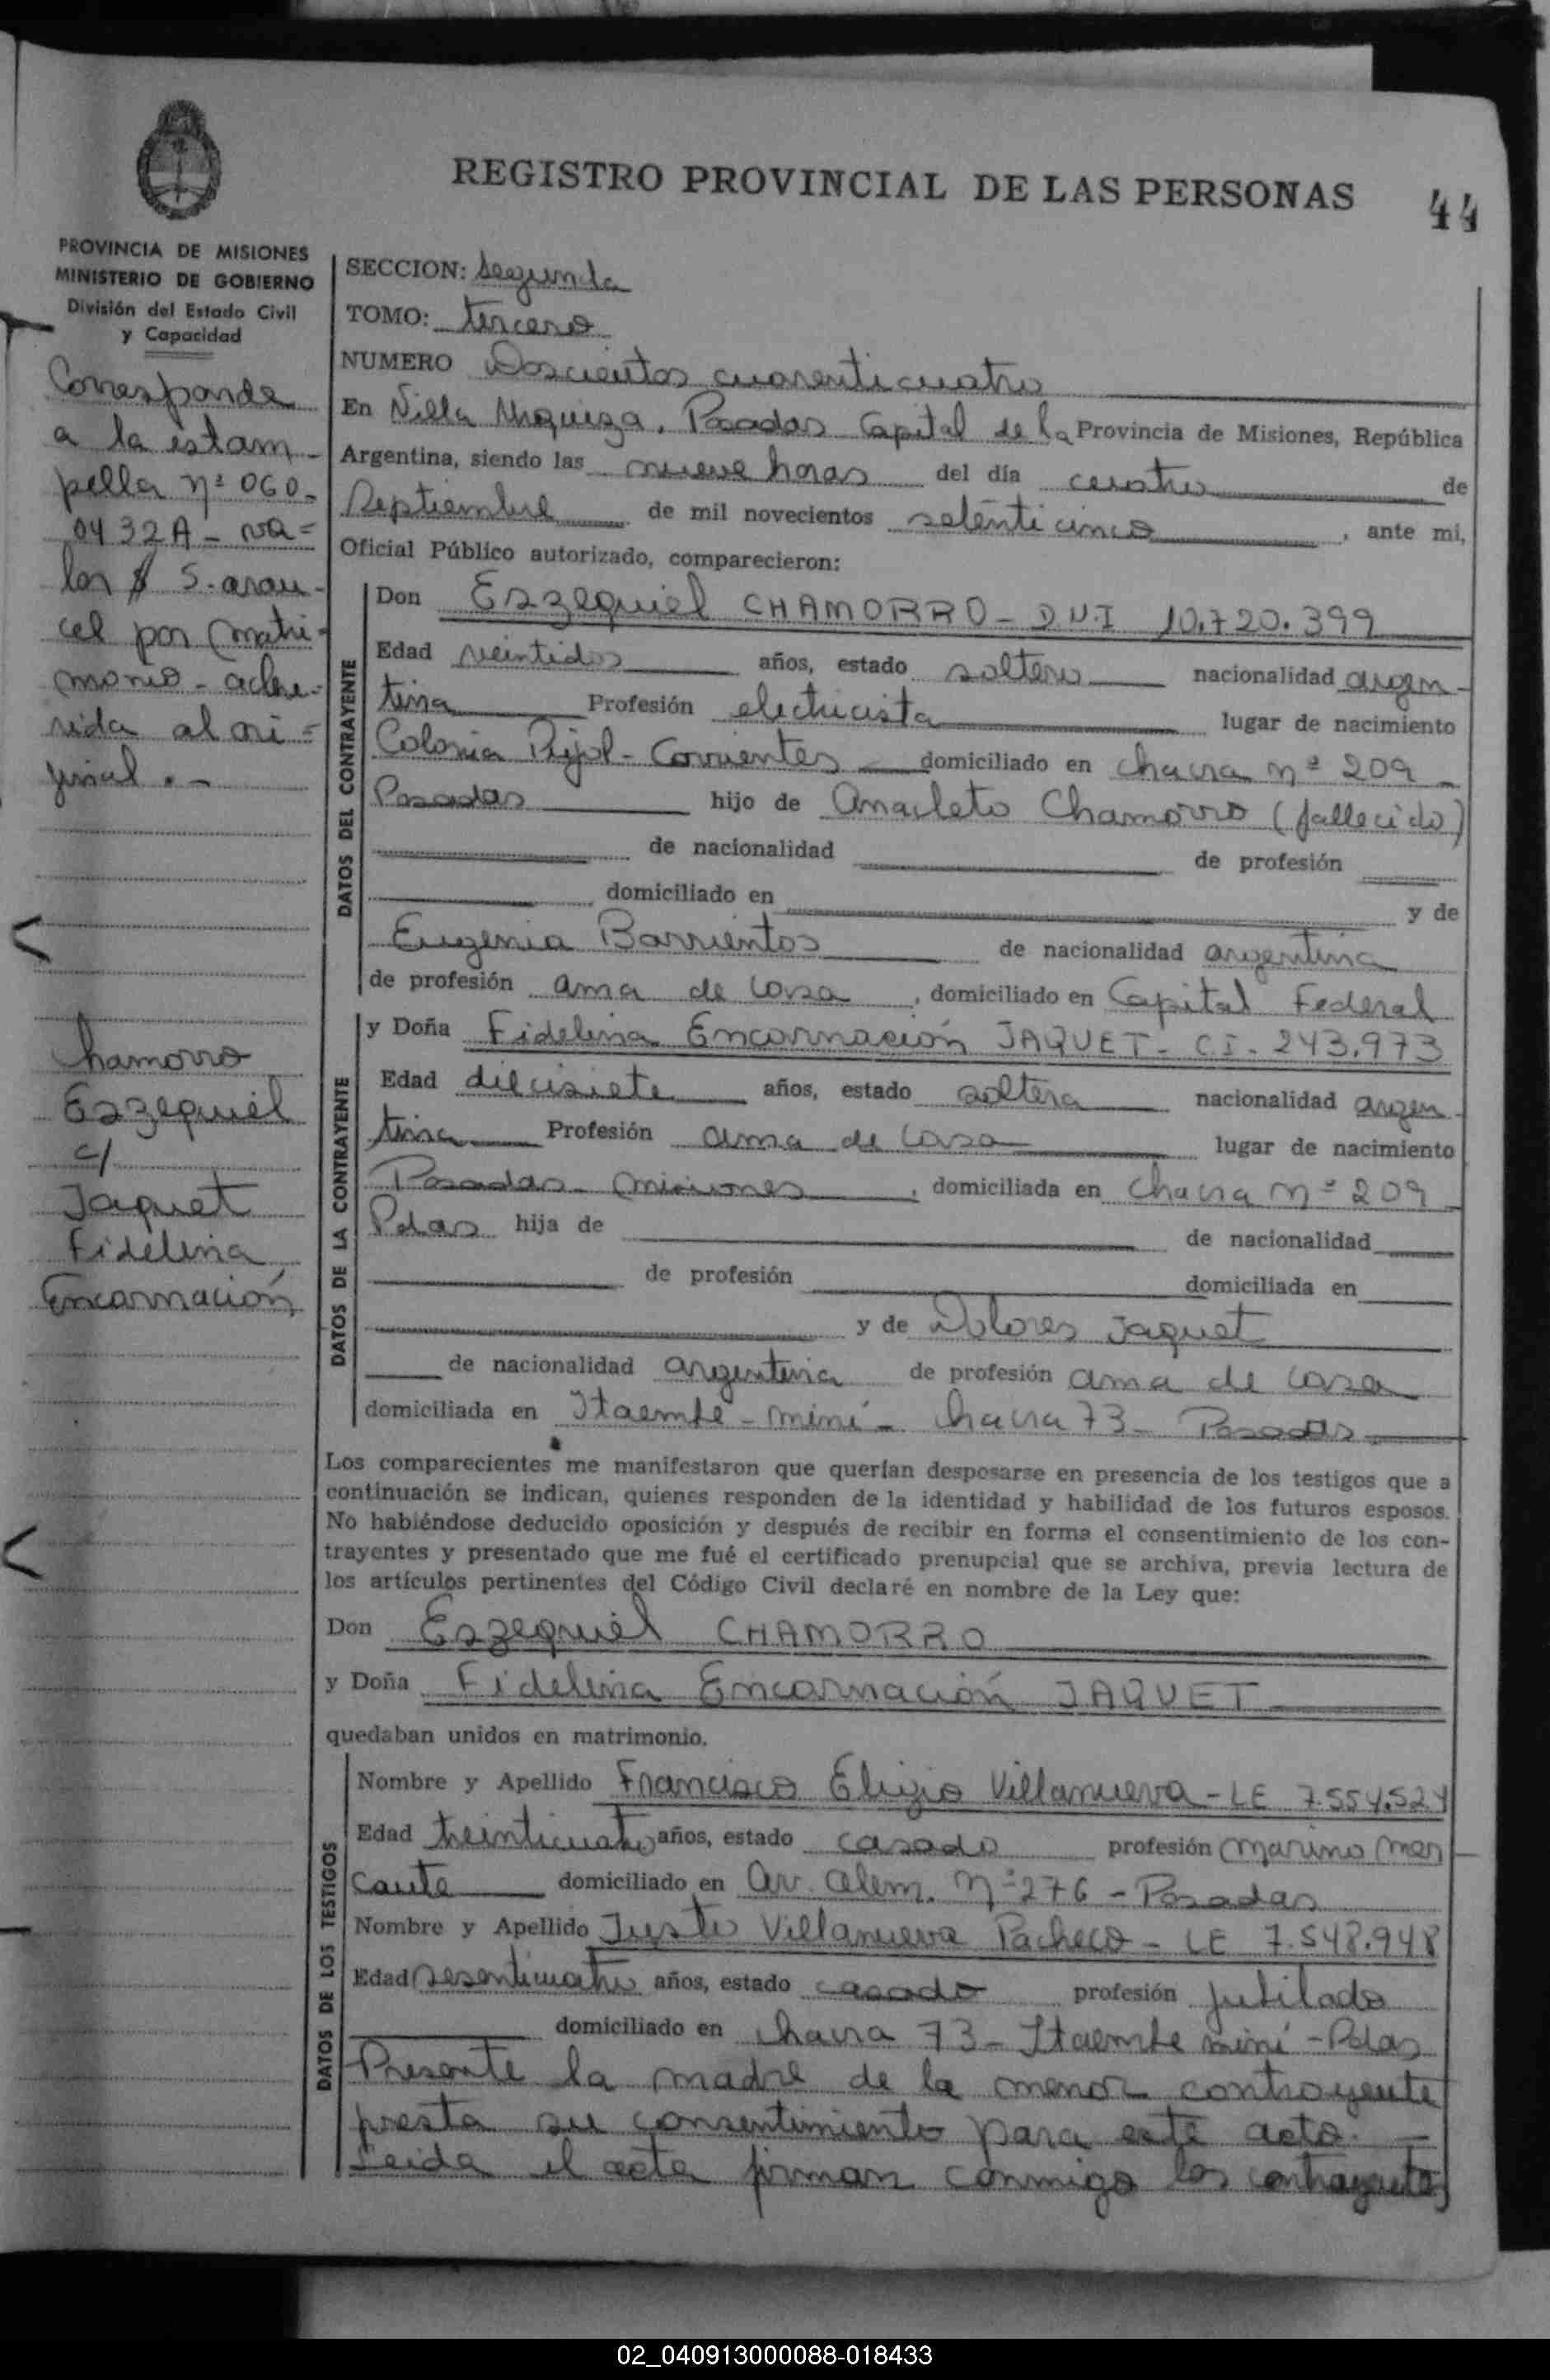 REGISTRO PROVINCIAL DE LAS PERSONAS 44
PROVINCIA DE MISIONES
MINISTERIO DE GOBIERNO
División del Estado Civil
y Capacidad
Corresponde
a la estam-
pilla nº 060-
0432A - va=
lor $ 5.- aran-
cel por matri-
monio - adhe-
rida al ori=
ginal.-
Chamorro
Eszequiel
c/
Jaquet
Fidelina
Encarnación
SECCION: Segunda
TOMO: tercero
NUMERO Doscientos cuarenticuatro
En Villa Urquiza, Posadas Capital de la Provincia de Misiones, República
Argentina, siendo las nueve horas del día cuatro de
Septiembre de mil novecientos setenticinco, ante mi,
Oficial Público autorizado, comparecieron:
DATOS DEL CONTRAYENTE
Don Eszequiel CHAMORRO - D.N.I 10.720.399
Edad veintidos años, estado soltero nacionalidad argen-
tina Profesión electricista lugar de nacimiento
Colonia Pujol - Corrientes domiciliado en chacra nº 209 -
Posadas hijo de Anacleto Chamorro (fallecido)
de nacionalidad de profesión
domiciliado en y de
Eugenia Barrientos de nacionalidad argentina
de profesión ama de casa, domiciliado en Capital Federal
DATOS DE LA CONTRAYENTE
y Doña Fidelina Encarnación JAQUET - C.I - 243.973
Edad diecisiete años, estado soltera nacionalidad argen-
tina Profesión ama de casa lugar de nacimiento
Posadas - misiones, domiciliada en chacra nº 209
Pdas hija de de nacionalidad
de profesión domiciliada en
y de Dolores Jaquet
de nacionalidad argentina de profesión ama de casa
domiciliada en Itaembé - miní - chacra 73 - Posadas
Los comparecientes me manifestaron que querían desposarse en presencia de los testigos que a
continuación se indican, quienes responden de la identidad y habilidad de los futuros esposos.
No habiéndose deducido oposición y después de recibir en forma el consentimiento de los con-
trayentes y presentado que me fué el certificado prenupcial que se archiva, previa lectura de
los artículos pertinentes del Código Civil declaré en nombre de la Ley que:
Don Eszequiel CHAMORRO
y Doña Fidelina Encarnación JAQUET
quedaban unidos en matrimonio.
DATOS DE LOS TESTIGOS
Nombre y Apellido Francisco Eligio Villanueva - LE 7.554.524
Edad treinticuatro años, estado casado profesión marino mer
cante domiciliado en av. alem. nº 276 - Posadas
Nombre y Apellido Justo Villanueva Pacheco - LE 7.548.948
Edad sesenticuatro años, estado casado profesión jubilado
domiciliado en chacra 73 - Itaembe miní - Pdas
Presente la madre de la menor contrayente
presta su consentimiento para este acto. -
Leida el acta firman conmigo los contrayentes
02_040913000088-018433